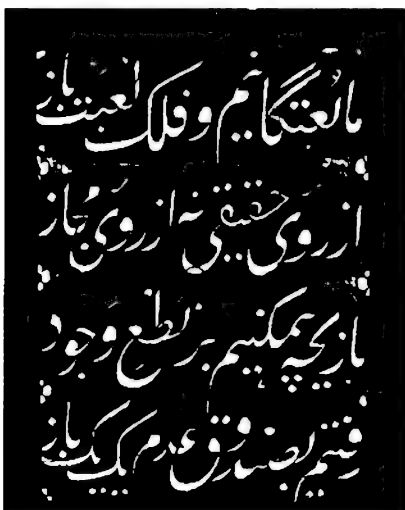 ما لعبتگانیم و فلک لعبت باز
از روی حقیقی نه از روی مجاز
بازیچه همکنیم بر نطع وجود
رفتیم بصندوق عدم یک یک باز